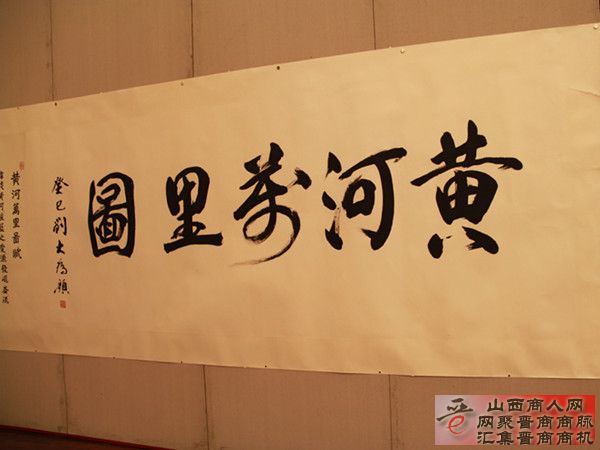 黄河萬里圖
癸巳劉大为題
黄河萬里圖賦
山西商人网
网聚晋商商脉
汇集晋商商机